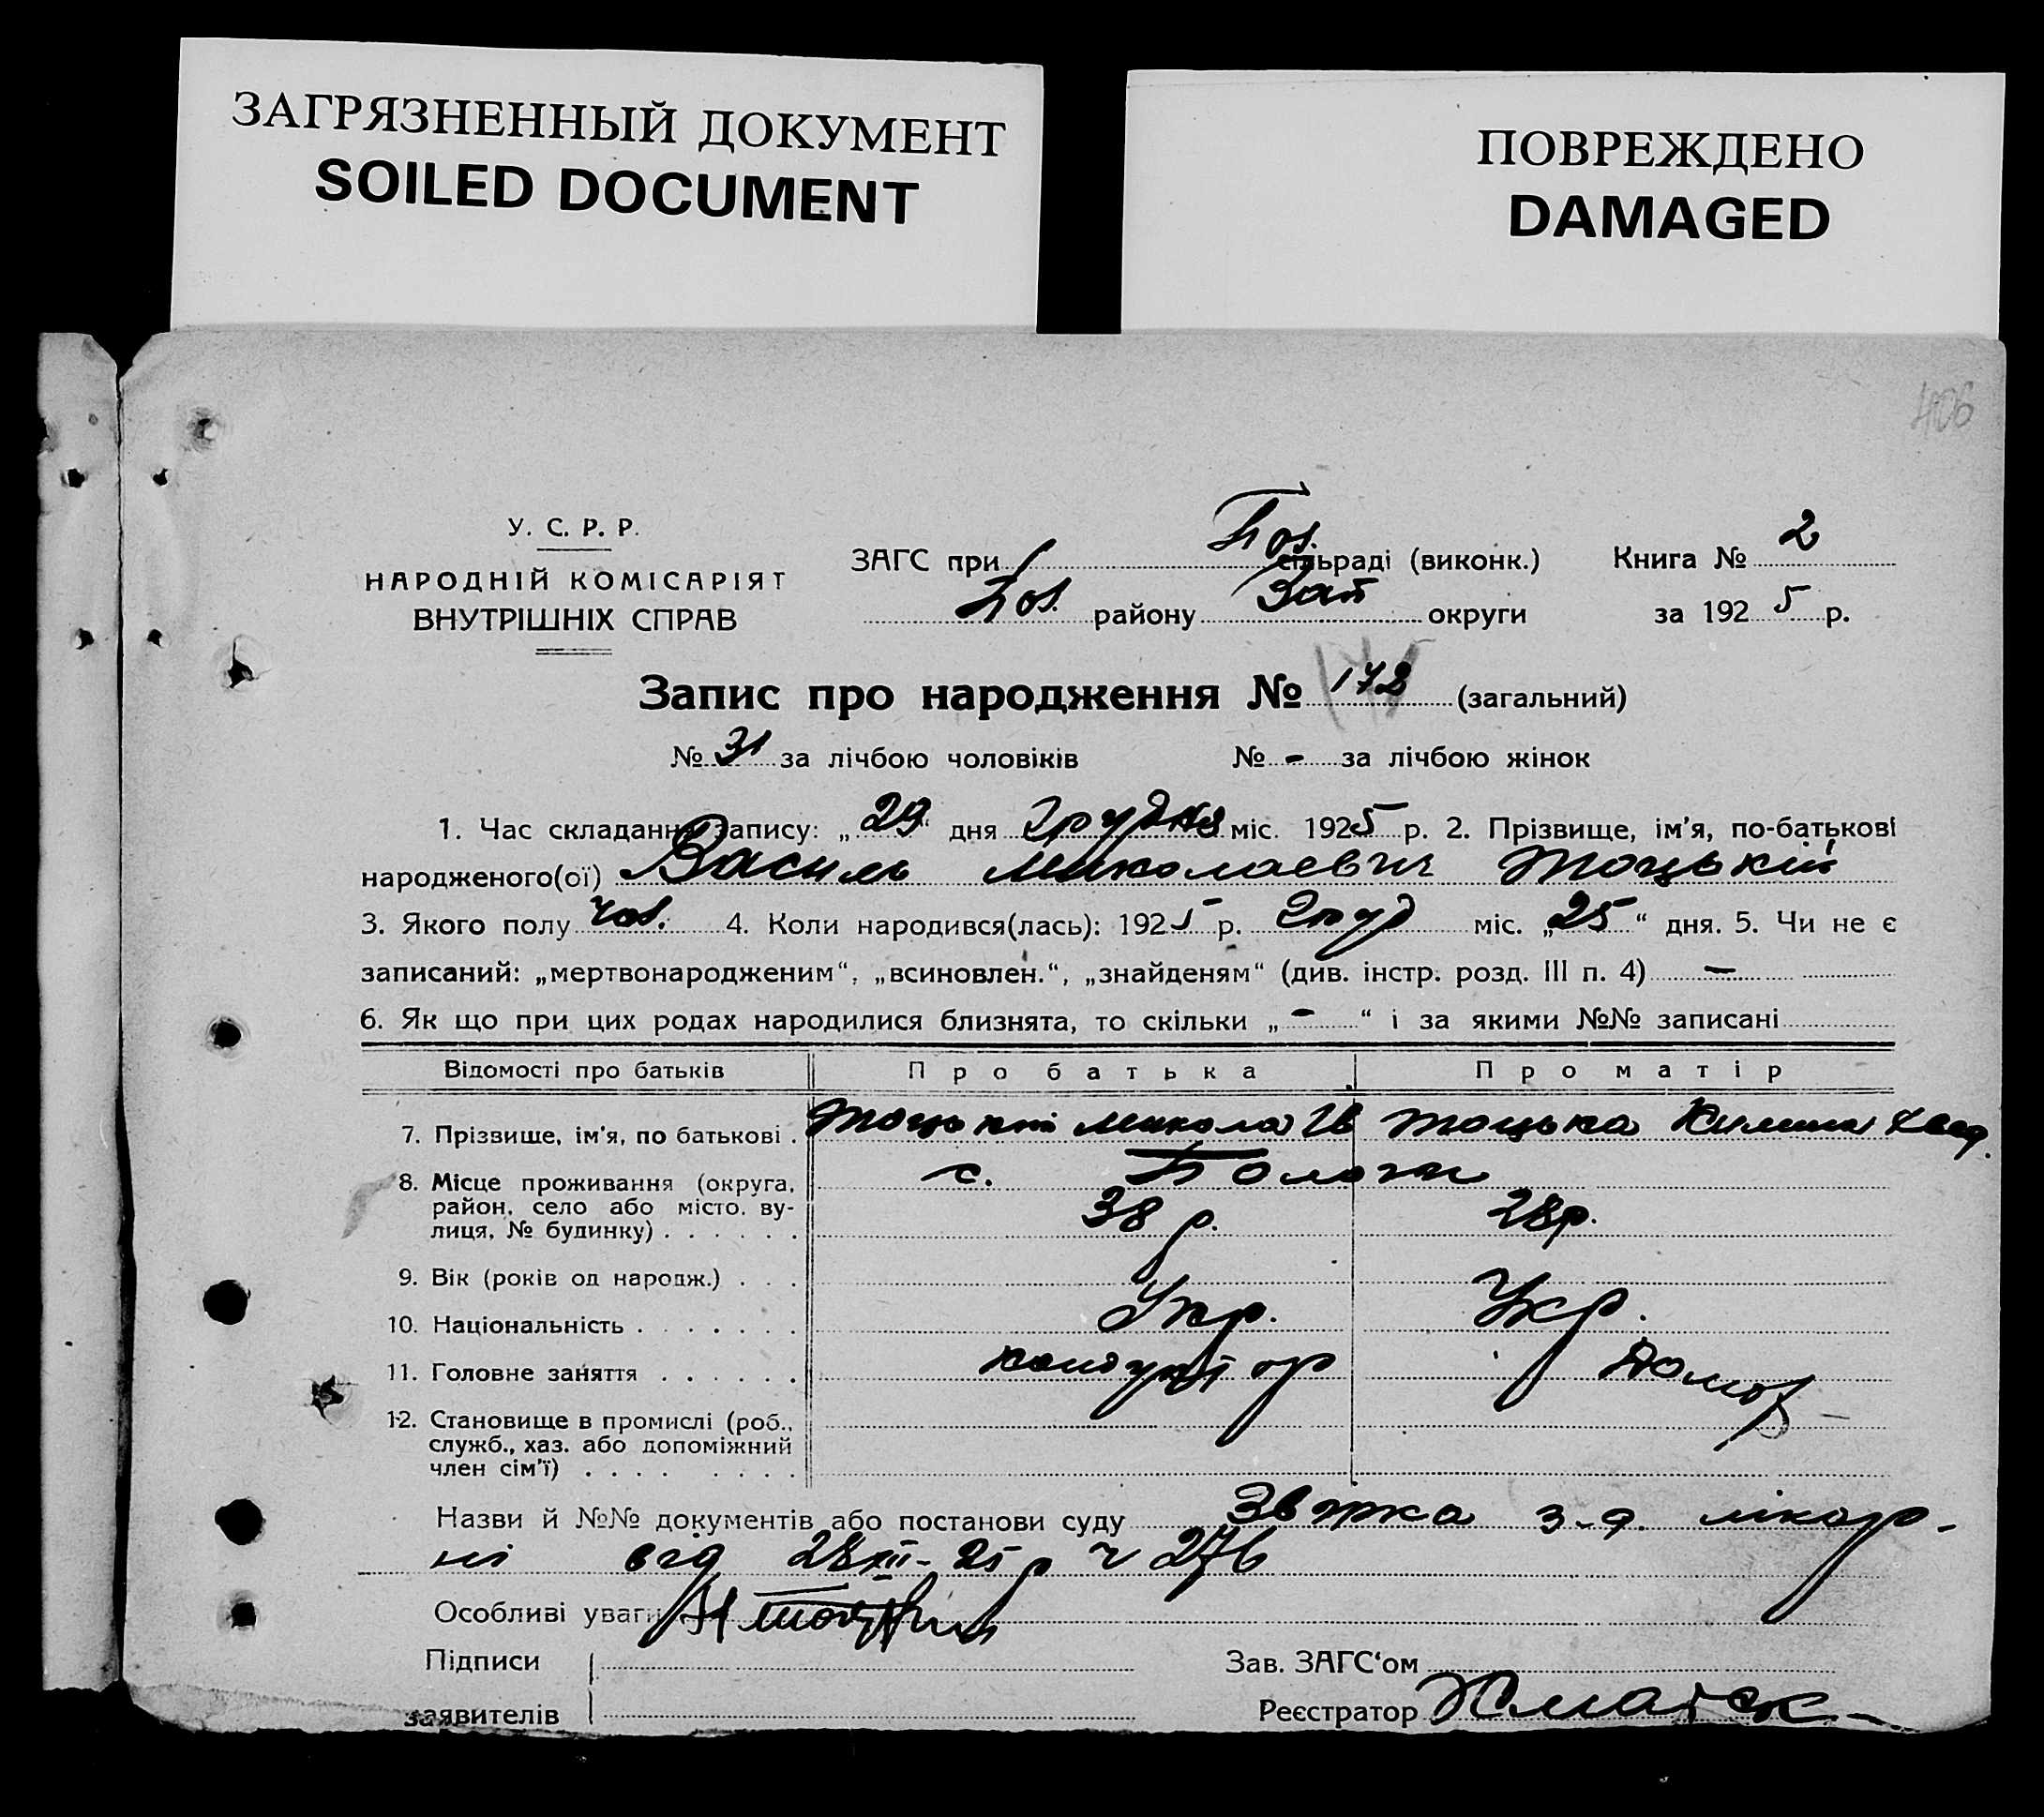 ЗАГРЯЗНЕННЫЙ ДОКУМЕНТ
SOILED DOCUMENT
ПОВРЕЖДЕНО
DAMAGED
406
У. С. Р. Р.
НАРОДНІЙ КОМІСАРІЯТ
ВНУТРІШНІХ СПРАВ
ЗАГС при Пол. сільраді (виконк.) Книга № 2
Пол. району Зап округи за 1925 р.
Запис про народження № 172 (загальний)
№ 31 за лічбою чоловіків № - за лічбою жінок
1. Час складання запису: „29“ дня Грудня міс. 1925 р. 2. Прізвище, ім'я, по-батькові
народженого(ої) Василь Миколаевич Тоцький
3. Якого полу чол. 4. Коли народився(лась): 1925 р. Груд міс. „25“ дня. 5. Чи не є
записаний: „мертвонародженим“, „всиновлен.“, „знайденям“ (див. інстр. розд. III п. 4) —
6. Як що при цих родах народилися близнята, то скільки „-“ і за якими №№ записані
Відомості про батьків Про батька Про матір
7. Прізвище, ім'я, по батькові . Тоцький Микола Ів Тоцька
8. Місце проживання (округа, с. Пологи
район, село або місто, ву-
лиця, № будинку) . . . . . . 38 р. 28 р.
9. Вік (років од нарοдж.) . . .
10. Національність . . . . . . . Укр. Укр.
11. Головне заняття . . . . . . кондуктор Домог
12. Становище в промислі (роб.,
служб., хаз. або допоміжний
член сім'ї) . . . . . . . .
Назви й №№ документів або постанови суду з-д. лікар-
ні від 28 XII-25 р ч 276
Особливі уваги
Підписи
заявителів
Зав. ЗАГС'ом
Реєстратор